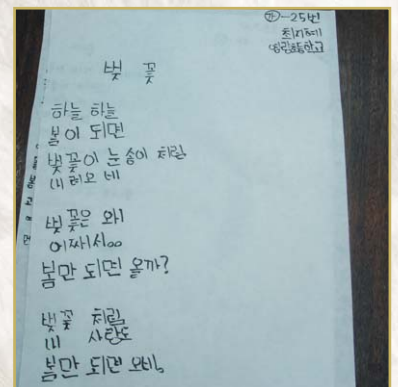 ㉮-25번
최지혜
영림초등학교
벚 꽃
하늘 하늘
봄이 되면
벚꽃이 눈송이 처럼
내려오네
벚꽃은 왜
어째서
봄만 되면 올까?
벚꽃 처럼
내 사랑도
봄만 되면 오네,